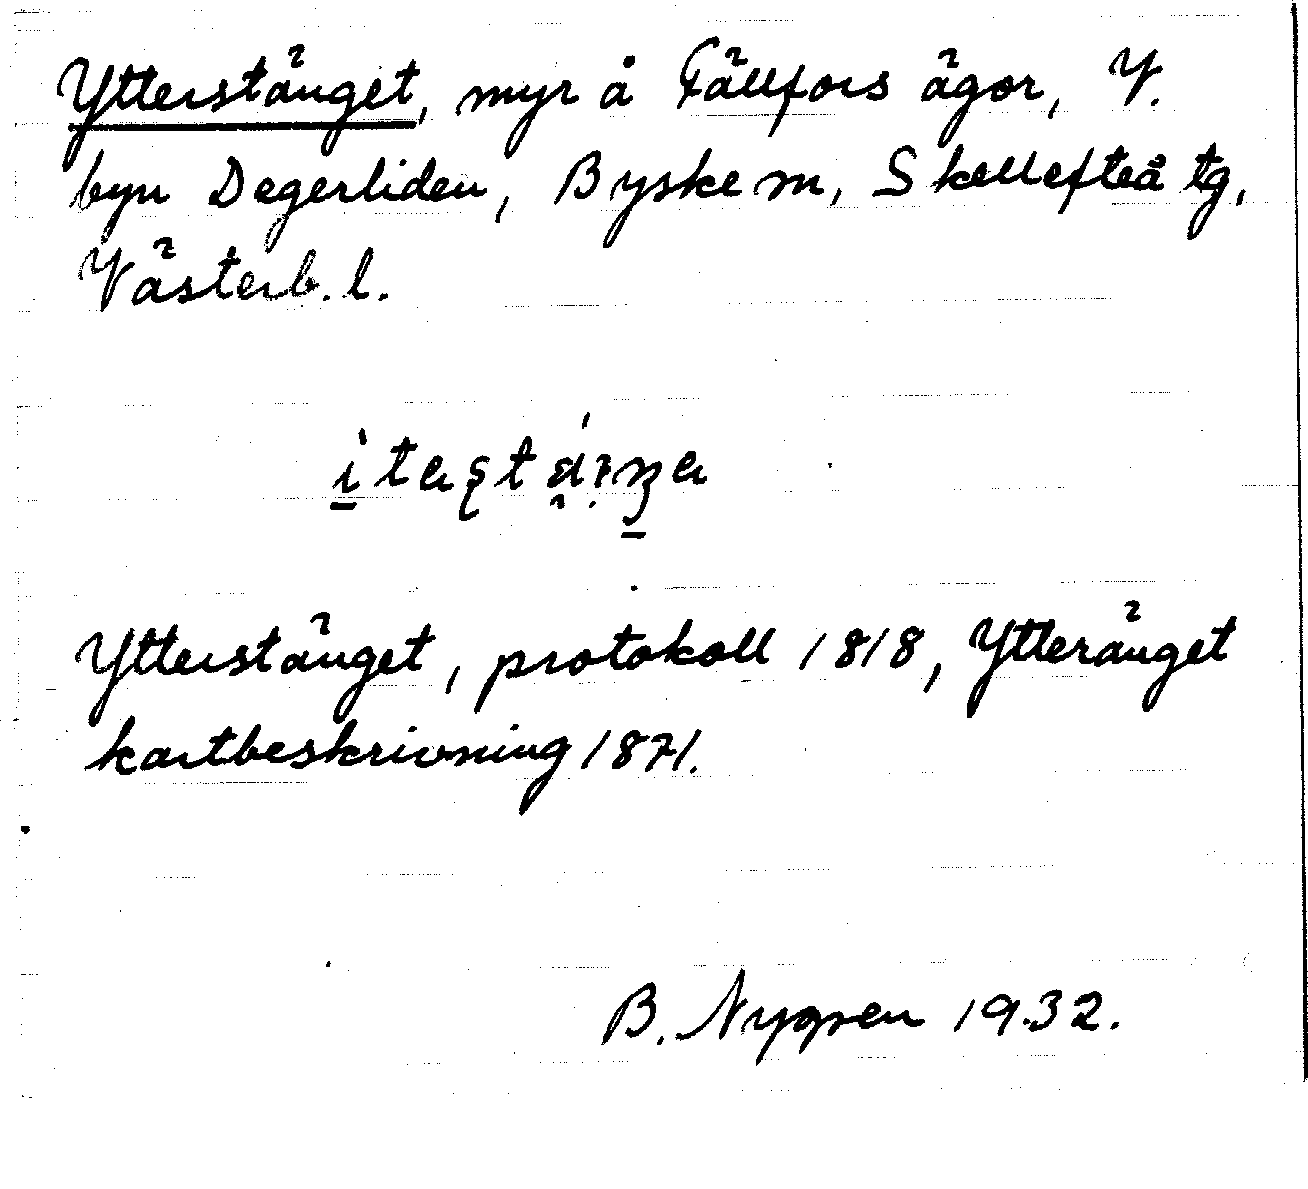 Ytterstänget, myr å Fällfors ägor, V.
byn Degerliden, Byske sn, Skellefteå tg,
Västerb. l.
Ytterstänget, protokoll 1818, Ytteränget
kartbeskrivning 1871.
B. Nygren 1932.